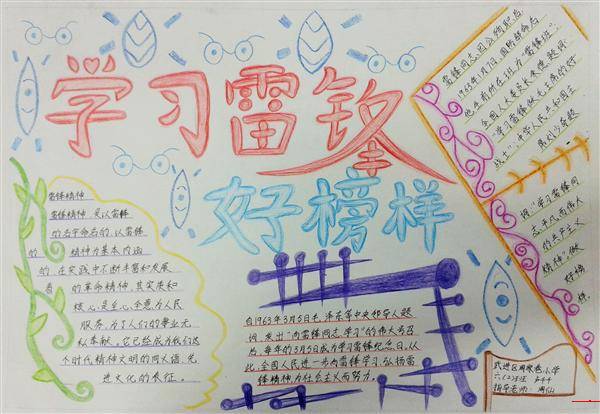 学习雷锋
好榜样
雷锋精神
雷锋精神,是以雷锋
的名字命名的、以雷锋
的 精神为基本内涵
的、在实践中不断丰富和发展
着 的革命精神,其实质和
核心是全心全意为人民
服务,为了人们的事业无
私奉献。它已经成为我们这
个时代精神文明的同义语、先
进文化的表征。
自1963年3月5日毛泽东等中央领导人题
词,发出“向雷锋同志学习”的伟大号召
后,每年的3月5日成为学习雷锋纪念日,从
此,全国人民进一步向雷锋学习,弘扬雷
锋精神,为社会主义而努力。
雷锋同志因公殉职后
1963年1月7日,国防部命名
他生前所在班为“雷锋班”
战士”。中华人民共和国主
词“学习雷锋同
志平凡而伟大
的共产主义
精神”,做
好榜
样
武进区周家巷小学
指导老师: